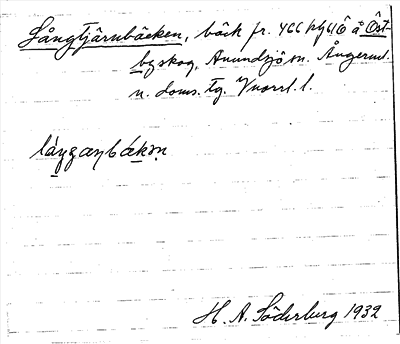 Långtjärnbäcken, bäck fr. 466 på Öst-
byskog, Anundsjö sn. Ångerml.
n. doms. tg. Vnorrl. l.
H. A. Söderberg 1932